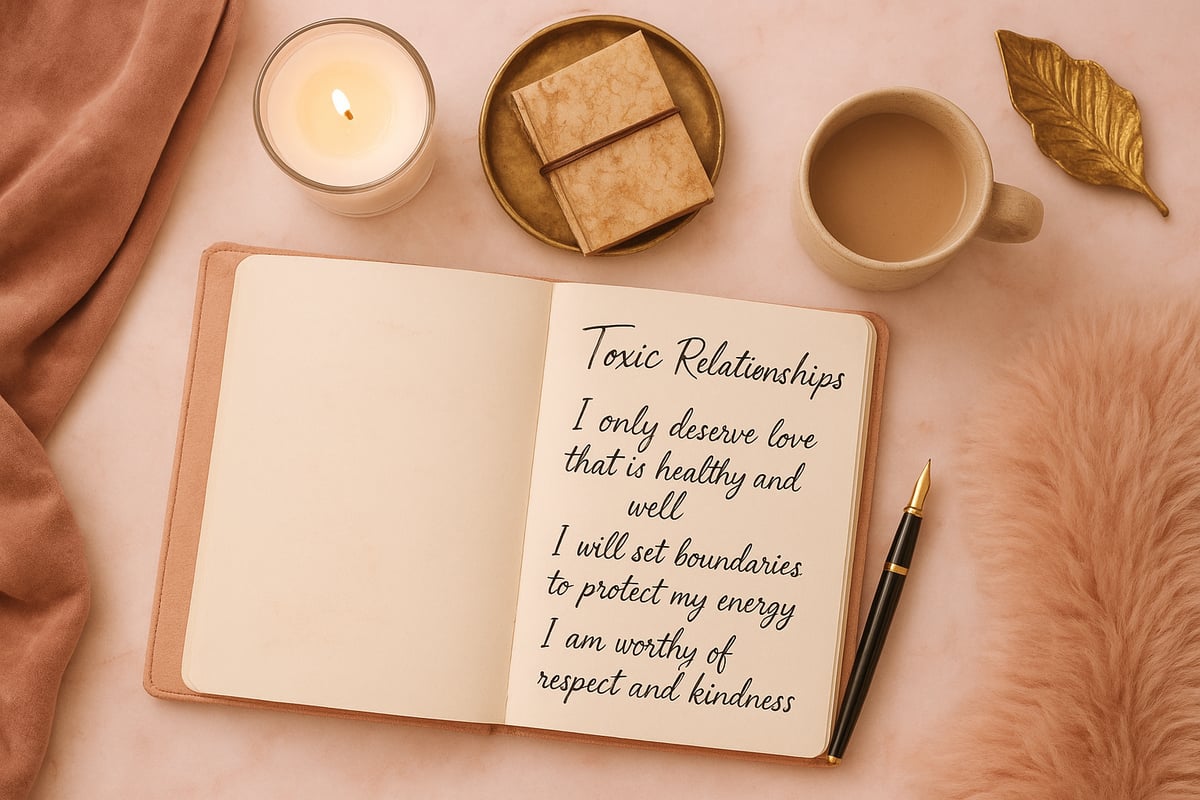 Toxic Relationships
I only deserve love
that is healthy and
well
I will set boundaries
to protect my energy
I am worthy of
respect and kindness